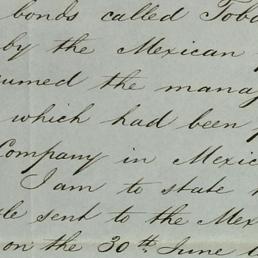 bonds called Toba
by the Mexican
umed the mana
which had been
Company in Mexic
I am to state
le sent to the Mex
on the 30th June